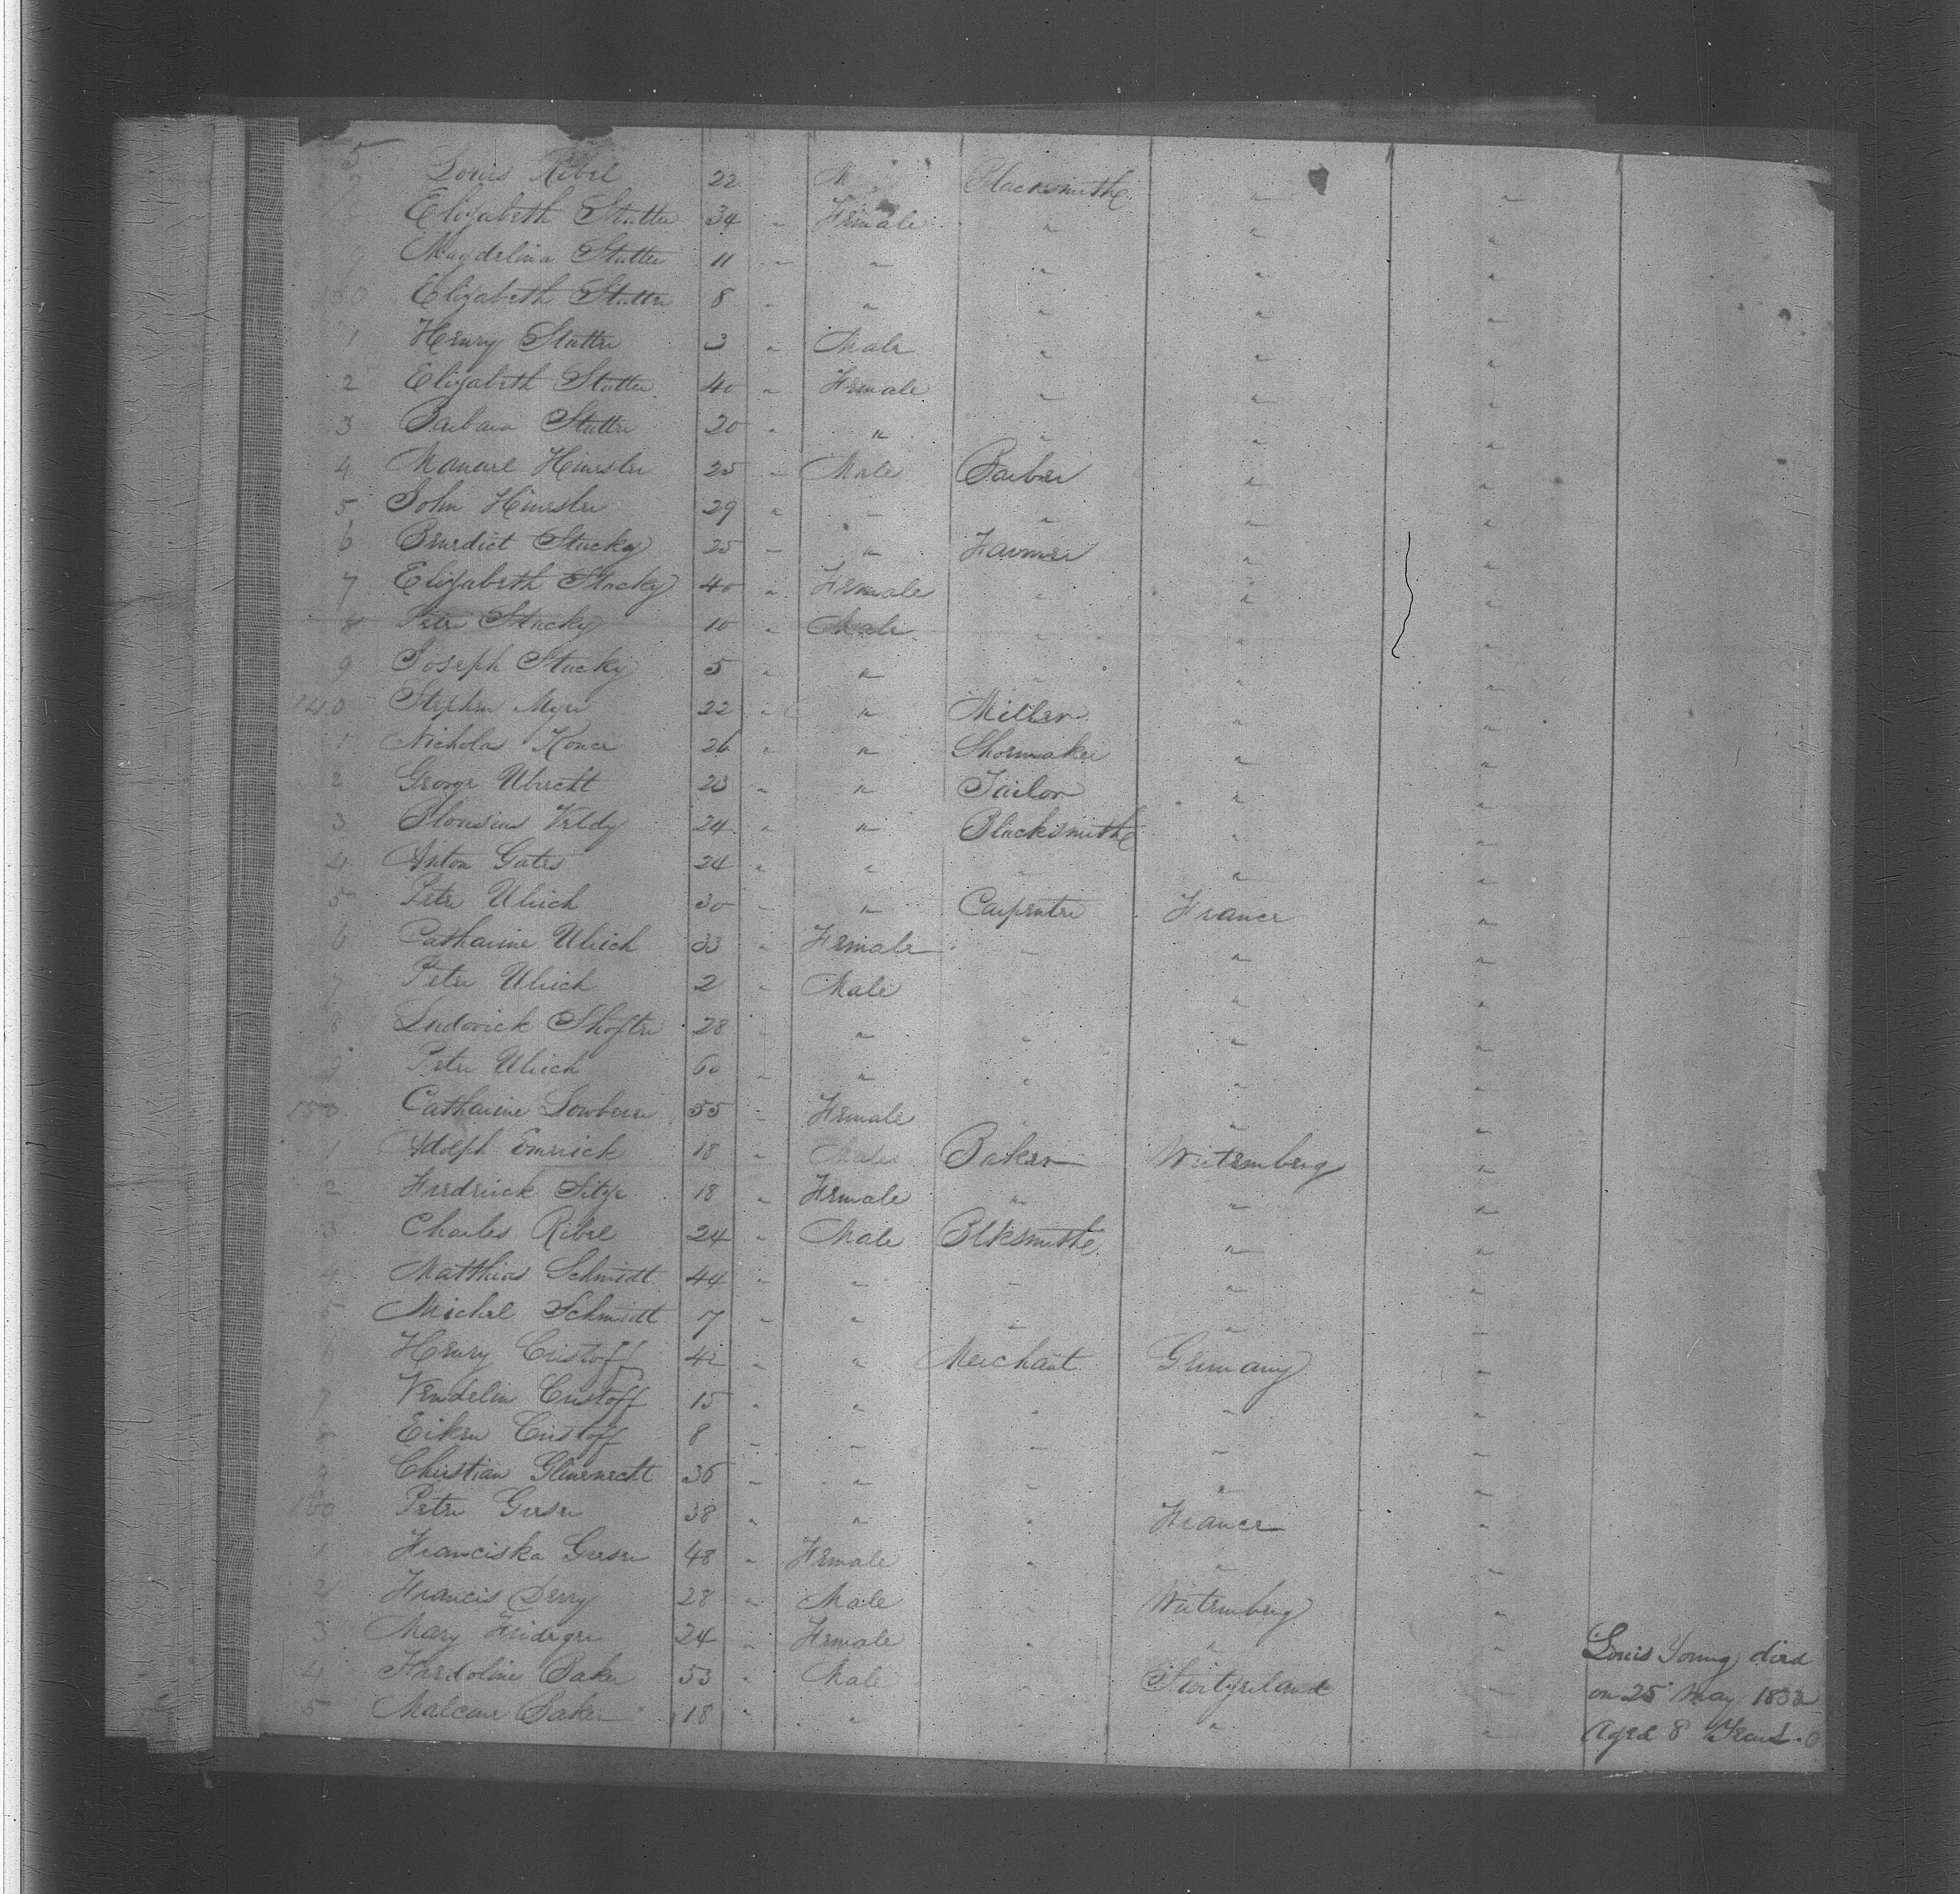 5
Louis Ribel 22 M Blacksmith " "
Elizabeth Stutter 34 " Female " " "
9 Magdelina Stutter 11 " " " " "
130 Elizabeth Stutter 8 " " " " "
1 Henry Stutter 3 " Male " " "
2 Elizabeth Stutter 40 " Female " " "
3 Barbara Stutter 20 " " " " "
4 25 " Male Barber " "
5 John 29 " " " " "
6 Benedict Stucky 25 " " Farmer " "
7 Elizabeth Stucky 40 " Female " " "
8 Peter Stucky 10 " Male " " "
9 Joseph Stucky 5 " " " " "
140 Stephen Myer 22 " " Miller " "
1 Nicholas 26 " " Shoemaker " "
2 George Ubrecht 23 " " Tailor " "
3 Alousius Veldy 24 " " Blacksmith " "
4 Anton Gates 24 " " " " "
5 Peter Ulrich 30 " " Carpenter France "
6 Catharine Ulrich 33 " Female " " "
7 Peter Ulrich 2 " Male " "
8 Ludovick Shofter 28 " " " " "
9 Peter Ulrich 60 " " " " "
150 Catharine 55 " Female " " "
1 Adolph Emrick 18 " Male Baker Wirtemberg "
2 Fredrick 18 " Female " " "
3 Charles Ribel 24 " Male Blksmith " "
4 Matthias Schmidt 44 " " " " "
5 Michel Schmidt 7 " " " " "
6 Henry Cristoff 42 " " Merchant Germany "
7 Vendelin Cristoff 15 " " " " "
8 Cristoff 8 " " " " "
9 Christian 36 " " " " "
160 Peter Greser 38 " " " France "
1 Franciska Greser 48 " Female " " "
2 Francis Derry 28 " Male " Wirtemberg "
3 Mary 24 " Female " " "
4 Baker 53 " Male " Switzerland "
5 Baker 18 " " " " "
Louis Young died
on 25 May 1832
Aged 8 Years